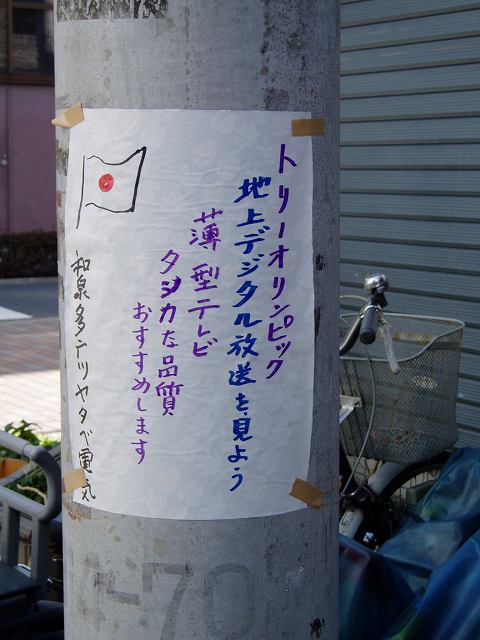 トリーオリンピック
地上デジタル放送を見よう
薄型テレビ
タシカな品質
おすすめします
和泉多ナツヤタベ電気
-70